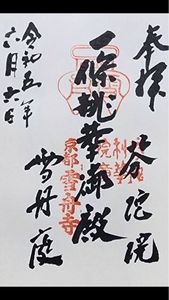 奉拝
芬陀院
一條桃華御殿
京都雪舟寺
雪舟庭
令和五年
六月六日